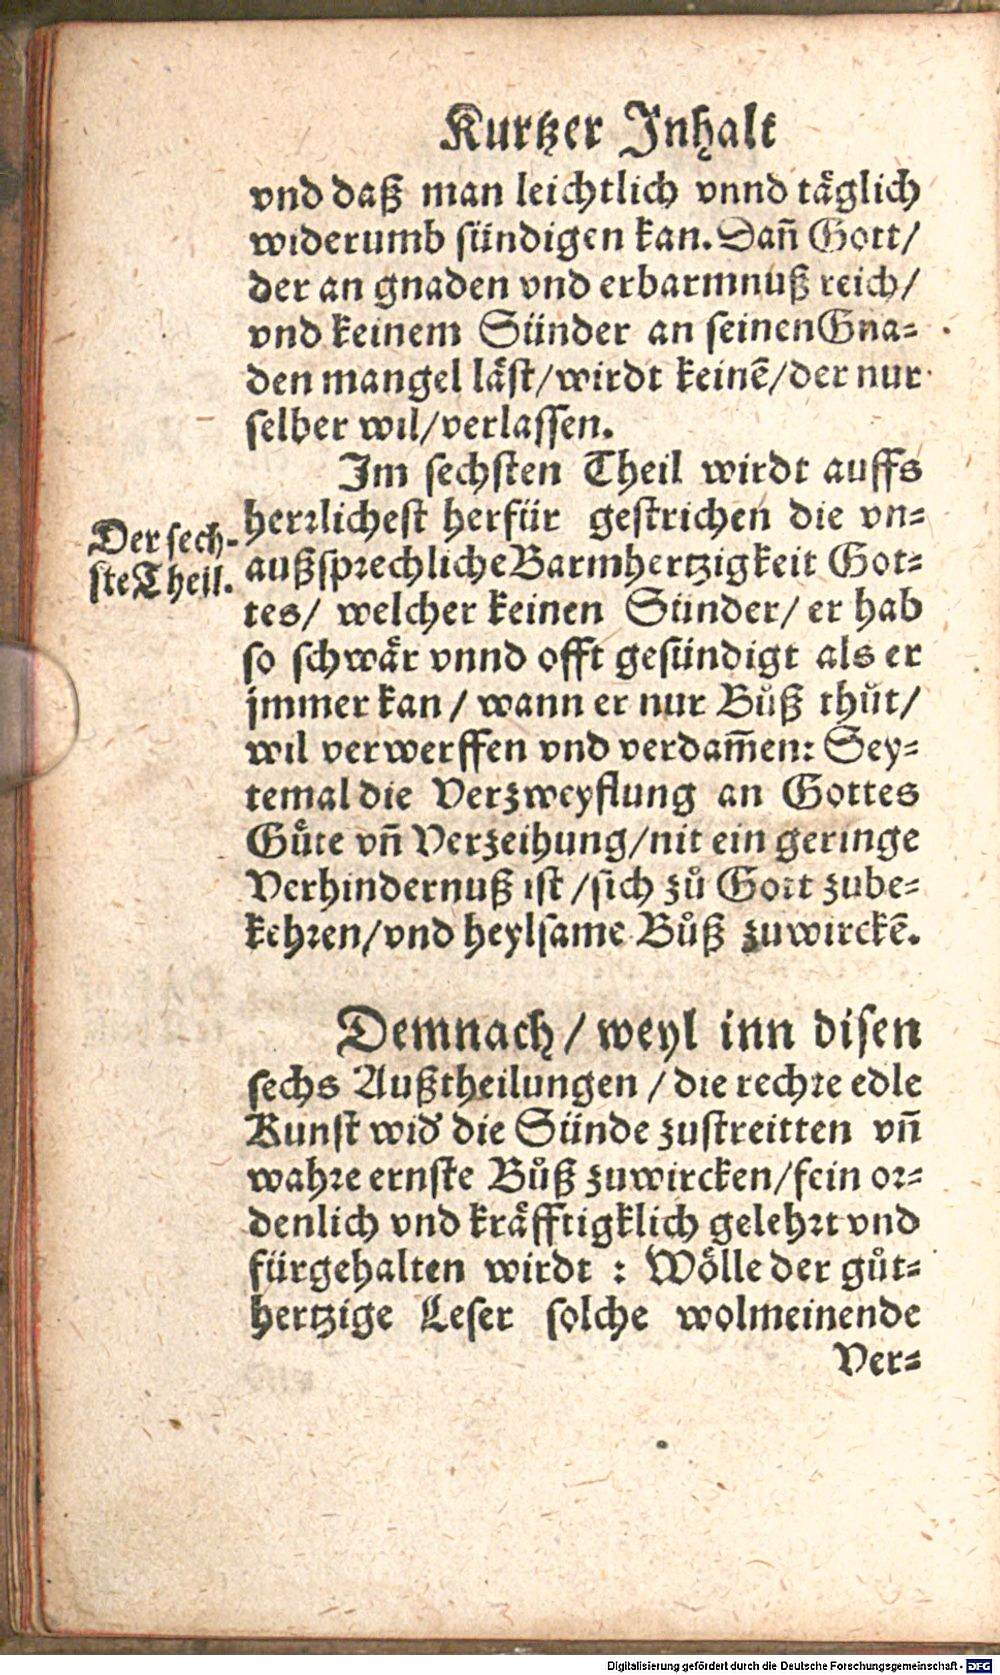 Kurtzer Inhalt
vnd daß man leichtlich vnnd täglich
widerumb sündigen kan. Dañ Gott/
der an gnaden vnd erbarmnuß reich/
vnd keinem Sünder an seinen Gna-
den mangel läst/wirdt keinē/der nur
selber wil/verlassen.
Im sechsten Theil wirdt auffs
herrlichest herfür gestrichen die vn-
Der sech-
ste Theil.
außsprechliche Barmhertzigkeit Got-
tes/ welcher keinen Sünder/ er hab
so schwär vnnd offt gesündigt als er
jmmer kan / wann er nur Bůß thůt/
wil verwerffen vnd verdam̄en: Sey-
temal die Verzweyflung an Gottes
Gůte vñ Verzeihung/nit ein geringe
Verhindernuß ist /sich zů Gott zube-
kehren/vnd heylsame Bůß zuwirckē.
Demnach / weyl inn disen
sechs Außtheilungen / die rechte edle
Kunst wid' die Sünde zustreitten vñ
wahre ernste Bůß zuwircken/fein or-
denlich vnd kräfftigklich gelehrt vnd
fürgehalten wirdt : Wölle der gůt-
hertzige Leser solche wolmeinende
Ver-
Digitalisierung gefördert durch die Deutsche Forschungsgemeinschaft - DFG